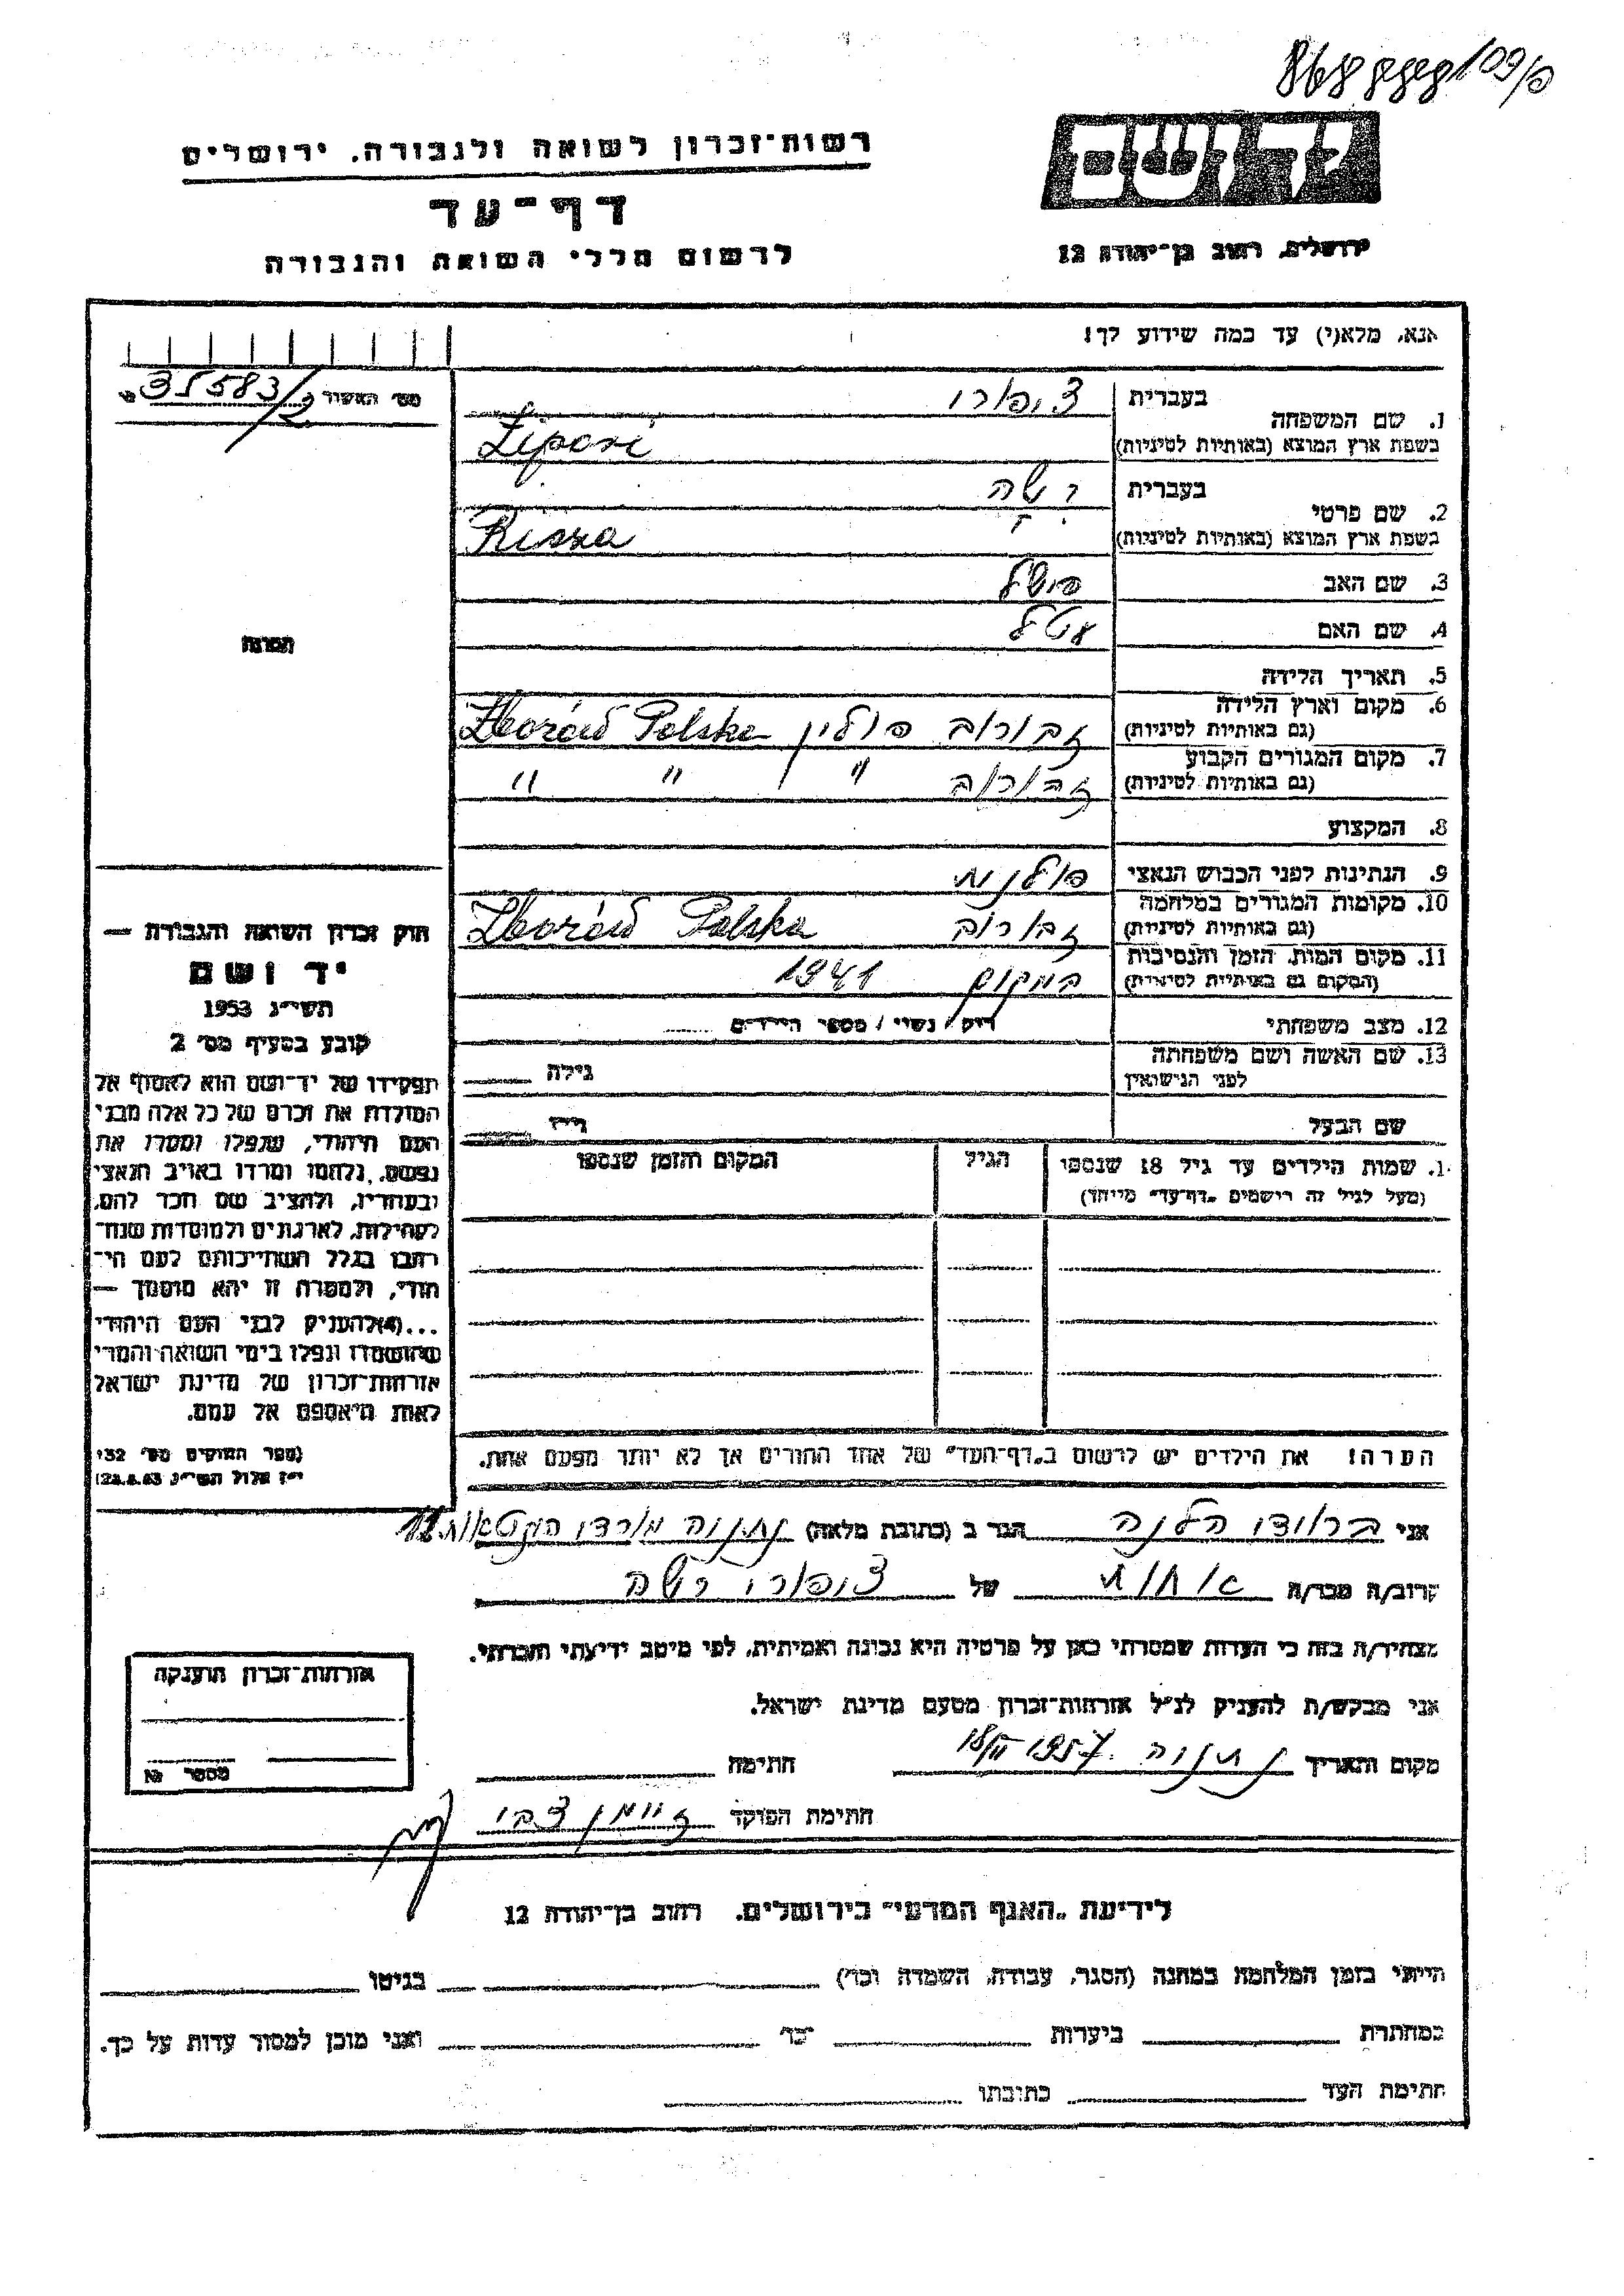 רשות־זכרון לשואה ולגבורה, ירושלים
דף־עד
לרשום חללי השואה והגבורה
ידושם
ירושלים, רחוב בן־יהודה 12
אנא, מלא(י) עד כמה שידוע לך!
מס׳ האשור 35583/2
1. שם המשפחה
בעברית צופורי
בשפת ארץ המוצא (באותיות לטיניות) Zipori
2. שם פרטי
בעברית רישה
בשפת ארץ המוצא (באותיות לטיניות) Risza
3. שם האב פישל
4. שם האם עטל
5. תאריך הלידה
6. מקום וארץ הלידה
(גם באותיות לטיניות) זבורוב פולין Zborów Polska
7. מקום המגורים הקבוע
(גם באותיות לטיניות) זבורוב " " "
8. המקצוע
9. הנתינות לפני הכבוש הנאצי פולנית
10. מקומות המגורים במלחמה
(גם באותיות לטיניות) זבורוב Zborów Polska
11. מקום המות, הזמן והנסיבות
(המקום גם באותיות לטיניות) במקום 1941
12. מצב משפחתי רווק / נשוי / מספר הילדים
13. שם האשה ושם משפחתה
לפני הנישואין גילה
שם הבעל גילו
שמות הילדים עד גיל 18 שנספו הגיל המקום והזמן שנספו
(מעל לגיל זה רישמים „דף־עד” מיוחד)
הערה! את הילדים יש לרשום ב„דף־העד” של אחד ההורים אך לא יותר מפעם אחת.
התמונה
חוק זכרון השואה והגבורה —
יד ושם
תשי״ג 1953
קובע בסעיף מס׳ 2
תפקידו של יד־ושם הוא לאסוף אל
המולדת את זכרם של כל אלה מבני
העם היהודי, שנפלו ומסרו את
נפשם, נלחמו ומרדו באויב הנאצי
ובעוזריו, ולהציב שם וזכר להם,
לקהילות, לארגונים ולמוסדות שנח־
רבו בגלל השתייכותם לעם הי־
הודי, ולמטרה זו יהא מוסמך —
...(4)להעניק לבני העם היהודי
שהושמדו ונפלו בימי השואה והמרי
אזרחות־זכרון של מדינת ישראל
לאות היאספם אל עמם.
(ספר החוקים מס׳ 132
י״ז אלול תשי״ג
אני ברודי הלנה הגר ב (כתובת מלאה) נתניה מורדי הגטאות 11
קרוב/ה מכר/ה אחות של צופורי רישה
מצהיר/ה בזה כי העדות שמסרתי כאן על פרטיה היא נכונה ואמיתית, לפי מיטב ידיעתי והכרתי.
אני מבקש/ת להעניק לנ״ל אזרחות־זכרון מטעם מדינת ישראל.
מקום ותאריך נתניה 1957 חתימה
חתימת הפוקד זיימן צבי
אזרחות־זכרון הוענקה
מספר №
לידיעת „האגף המדעי” בירושלים, רחוב בן־יהודה 12
הייתי בזמן המלחמה במחנה (הסגר, עבודה, השמדה וכו׳) בגיטו
במחתרת ביערות וכו׳ ואני מוכן למסור עדות על כך.
חתימת העד כתובתו